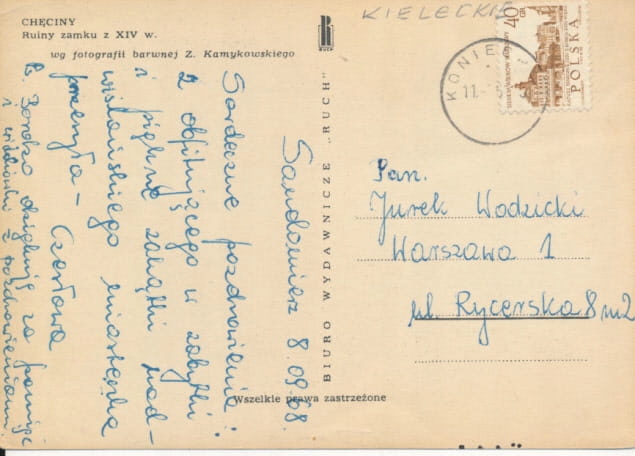 CHĘCINY
Ruiny zamku z XIV w.
wg fotografii barwnej Z. Kamykowskiego
RUCH
BIURO WYDAWNICZE „RUCH”
Wszelkie prawa zastrzeżone
KIELECKIE
40
GR
POLSKA
KONIE
11.
Sandomierz 8.09.68
Serdeczne pozdrowienia
z obfitującego w zabytki
i piękne zakątki nad-
wiślańskiego miasteczka
przesyła – Czesława
Ps. Bardzo dziękuję za pamięć
i widokówki z pozdrowieniami.
Pan.
Jurek Wodzicki
Warszawa 1
ul. Rycerska 8 m 2